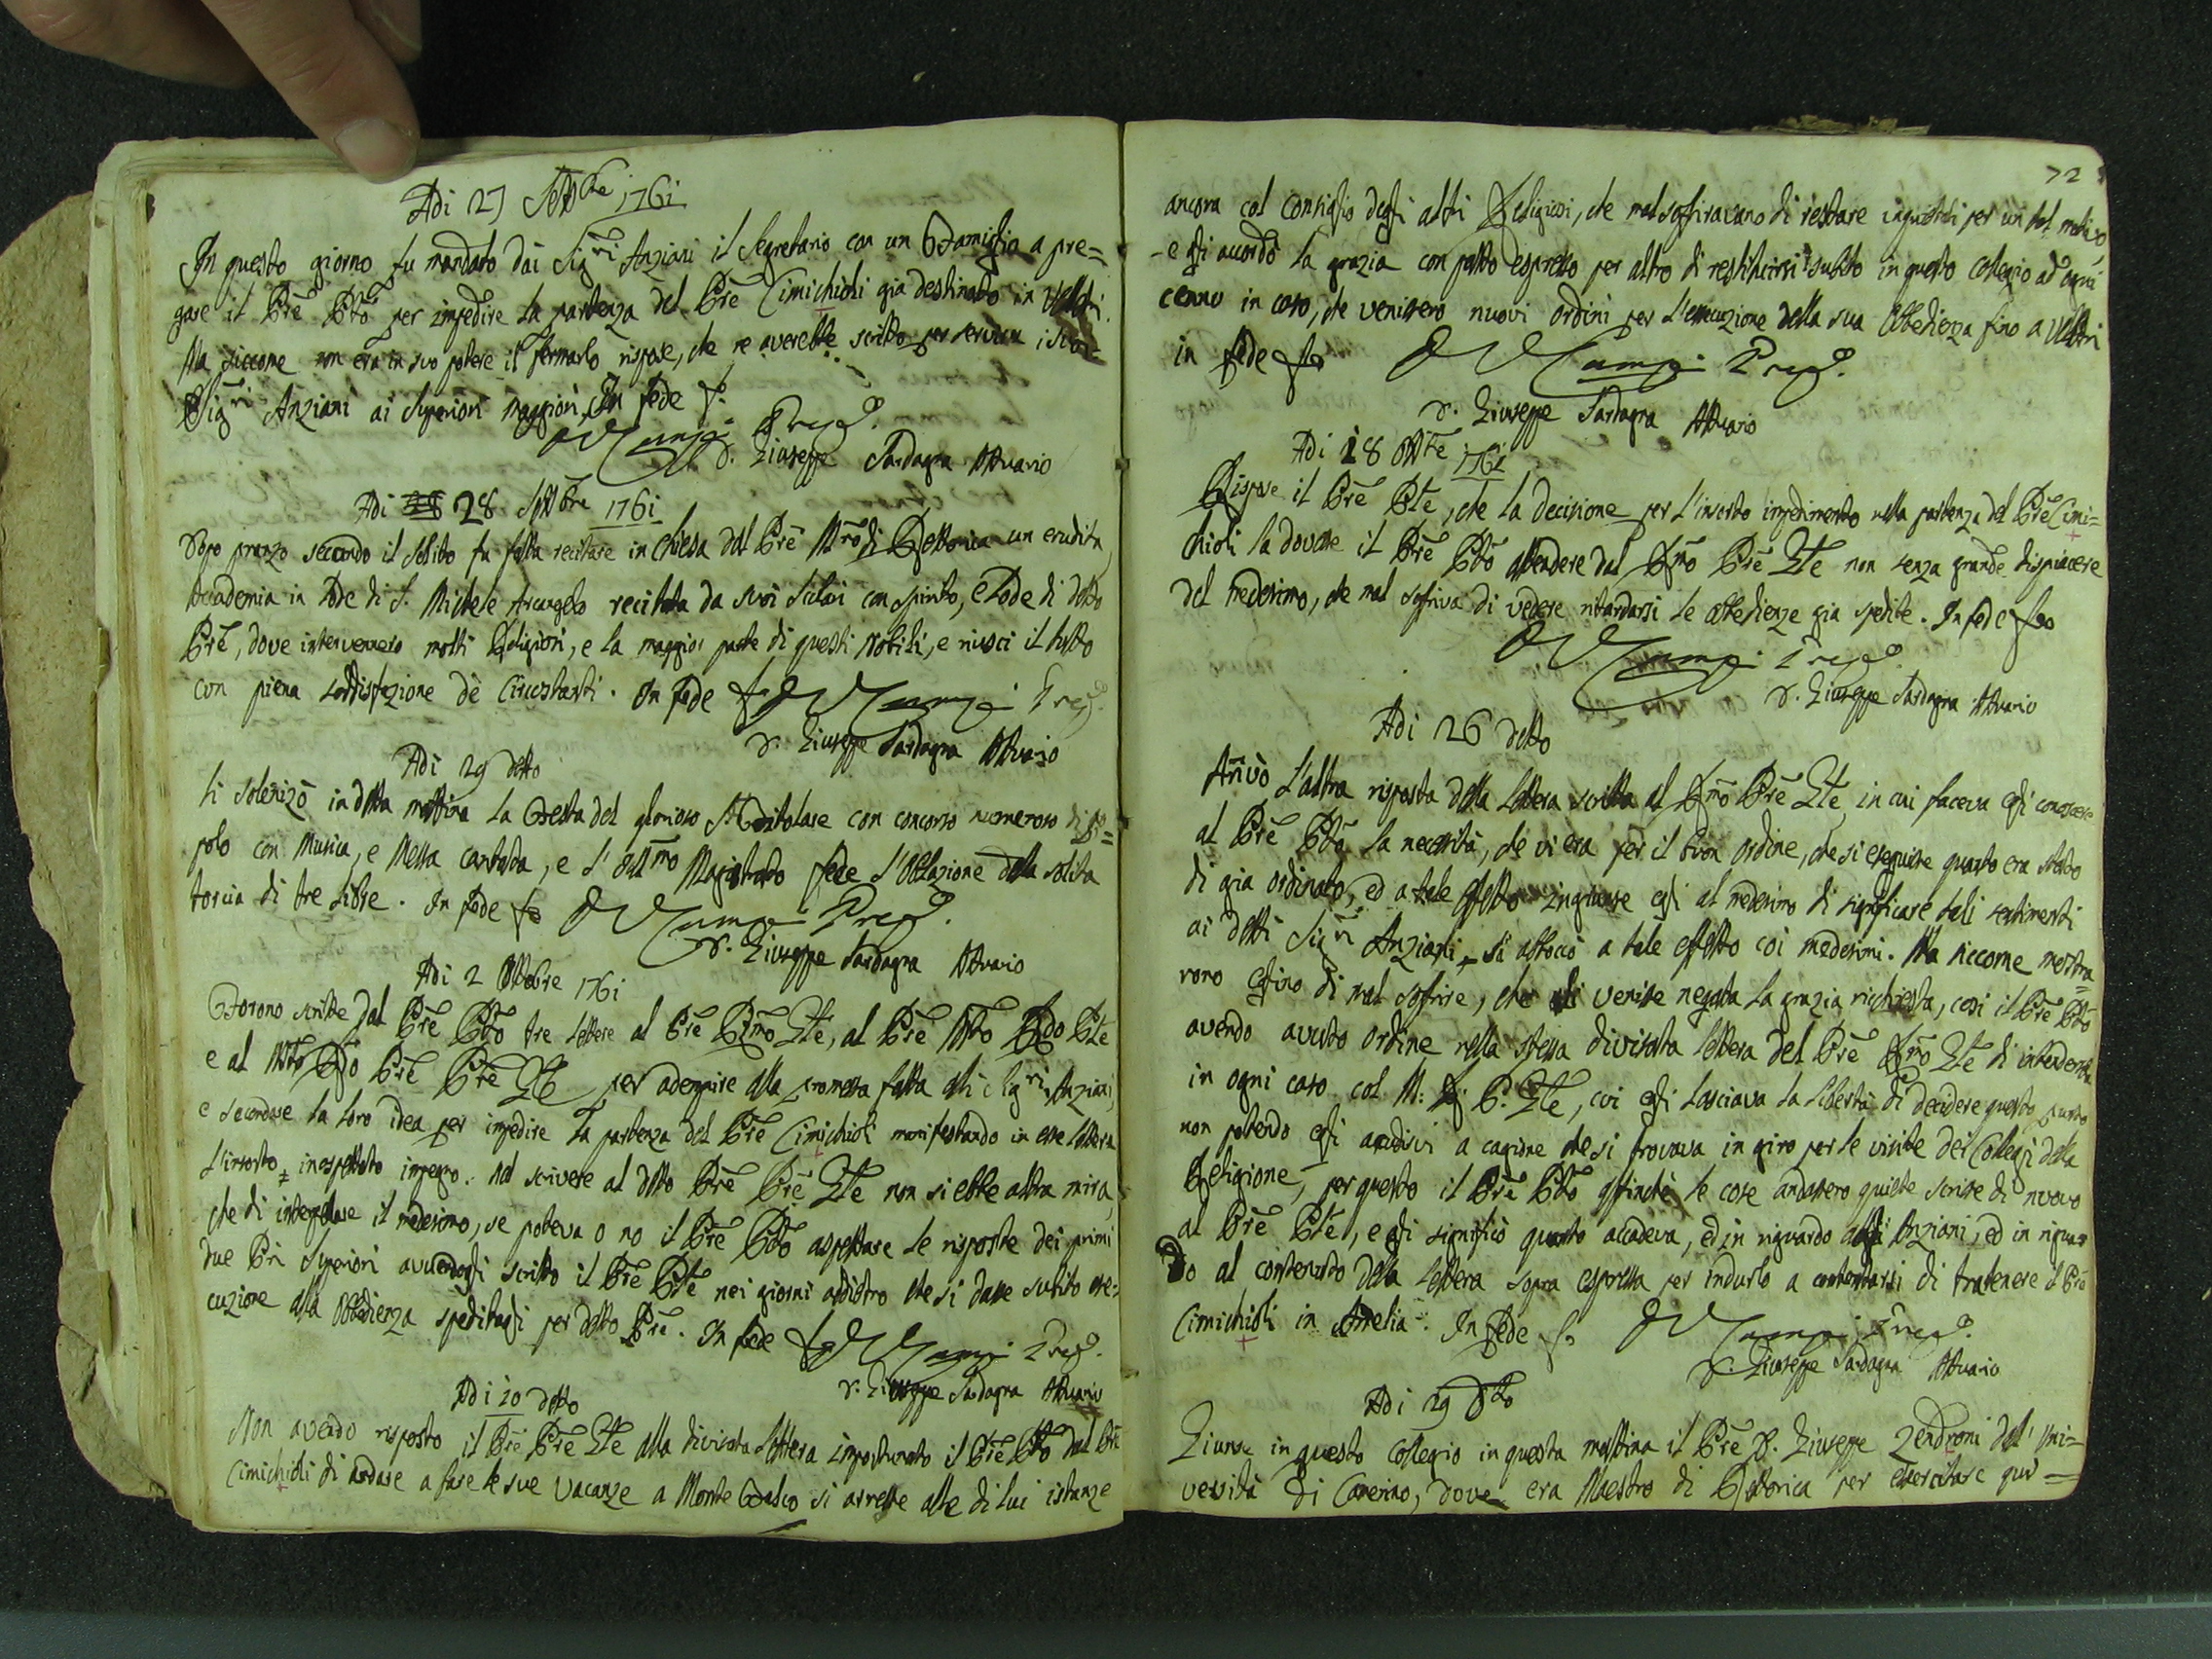 Adi 27 Settbre 1761
In questo giorno fu mandato dai Sigri Anziani il Segretario con un Famiglio a pre=
gare il Pre Ptto per impedire la partenza del Pre Cimichioli già destinato in Velletri.
Ma siccome non era in suo potere il fermarlo rispose, che ne averebbe scritto per servire i
Sigri Anziani ai Superiori maggiori. In fede
D. Giuseppe Sardagna Attuario
Adi 28 Settbre 1761
Dopo pranzo secondo il solito fu fatta recitare in Chiesa dal Pre Mro di Rettorica un erudita
Accademia in lode di S. Michele Arcangelo recitata da suoi Scolari con spirito, e lode di detto
Pre, dove intervennero molti Religiosi, e la maggior parte di questi Nobili, e riuscì il tutto
con piena soddisfazione de Circostanti. In fede
D. Giuseppe Sardagna Attuario
Adi 29 detto
Si solenizò in detta mattina la Festa del glorioso S. Titolare con concorso numeroso di po=
polo con Musica, e Messa cantata, e l'Illmo Magistrato fece l'oblazione della solita
torcia di tre libre. In fede
D. Giuseppe Sardagna Attuario
Adi 2 Ottobre 1761
Forono scritte dal Pre Ptto tre lettere al Pre Rmo Gle, al Pre Mto Rdo Ple
e al Mto Rdo Pre Pre Gle per adempire alla promessa fatta alli Sigri Anziani,
e secondare la loro idea per impedire la partenza del Pre Cimichioli manifestando in esse lettere
l'insorto, inaspettato impegno. Nel scrivere al detto Pre Pre Gle non si ebbe altra mira,
che di interpellare il medesimo, se poteva o no il Pre Ptto aspettare le risposte dei primi
due Pri Superiori avendogli scritto il Pre Ple nei giorni addietro che si dasse subito ese=
cuzione alla Obbedienza speditagli per detto Pre. In fede
D. Giuseppe Sardagna Attuario
Adi 10 detto
Non avendo risposto il Pre Pre Gle alla divisata lettera importunato il Pre Ptto dal Pre
Cimichioli di andare a fare le sue vacanze a Monte Falco si arrese alle di lui istanze
72
ancora col consiglio degli altri Religiosi, che mal soffrivano di restare inquietati per un tal motivo,
e gli accordò la grazia con patto espresso per altro di restituirsi subito in questo Collegio ad ogni
cenno in caso, che venissero nuovi ordini per l'esecuzione della sua Obbedienza fino a Velletri
in fede
D. Giuseppe Sardagna Attuario
Adi 18 Ottbre 1761
Rispose il Pre Ple, che la decisione per l'insorto impedimento nella partenza del Pre Cimi=
chioli la dovesse il Pre Ptto attendere dal Rmo Pre Gle non senza grande dispiacere
del medesimo, che mal soffriva di vedere ritardarsi le obbedienze già spedite. In fede
D. Giuseppe Sardagna Attuario
Adi 26 detto
Arrivò l'altra risposta della lettera scritta al Rmo Pre Gle, in cui faceva egli conoscere
al Pre Ptto la necessità, che vi era per il buon ordine, che si eseguisse quanto era stato
di già ordinato, ed a tale effetto ingiunse egli al medesimo di significare tali sentimenti
ai detti Sigri Anziani, si abboccò a tale effetto coi medesimi. Ma siccome mostra=
rono eglino di mal soffrire, che li venisse negata la grazia richiesta, così il Pre Ptto
avendo avuto ordine nella stessa divisata lettera del Pre Rmo Gle di intendersela
in ogni caso col M: R: P. Gle, cui egli lasciava la libertà di decidere questo punto
non potendo egli accudirvi a cagione che si trovava in giro per le visite dei Collegj della
Religione, per questo il Pre Ptto affinchè le cose andassero quiete scrisse di nuovo
al Pre Ple, e gli significò quanto accadeva, ed in riguardo agli Anziani, ed in riguar
do al contenuto della lettera sopra espressa per indurlo a contentarsi di tratenere il Pre
Cimichioli in Amelia. In fede
D. Giuseppe Sardagna Attuario
Adi 29 dtto
Giunse in questo Collegio in questa mattina il Pre D. Giuseppe Zendroni dal' Uni=
versità di Camerino, dove era Maestro di Rettorica per esercitare qui=